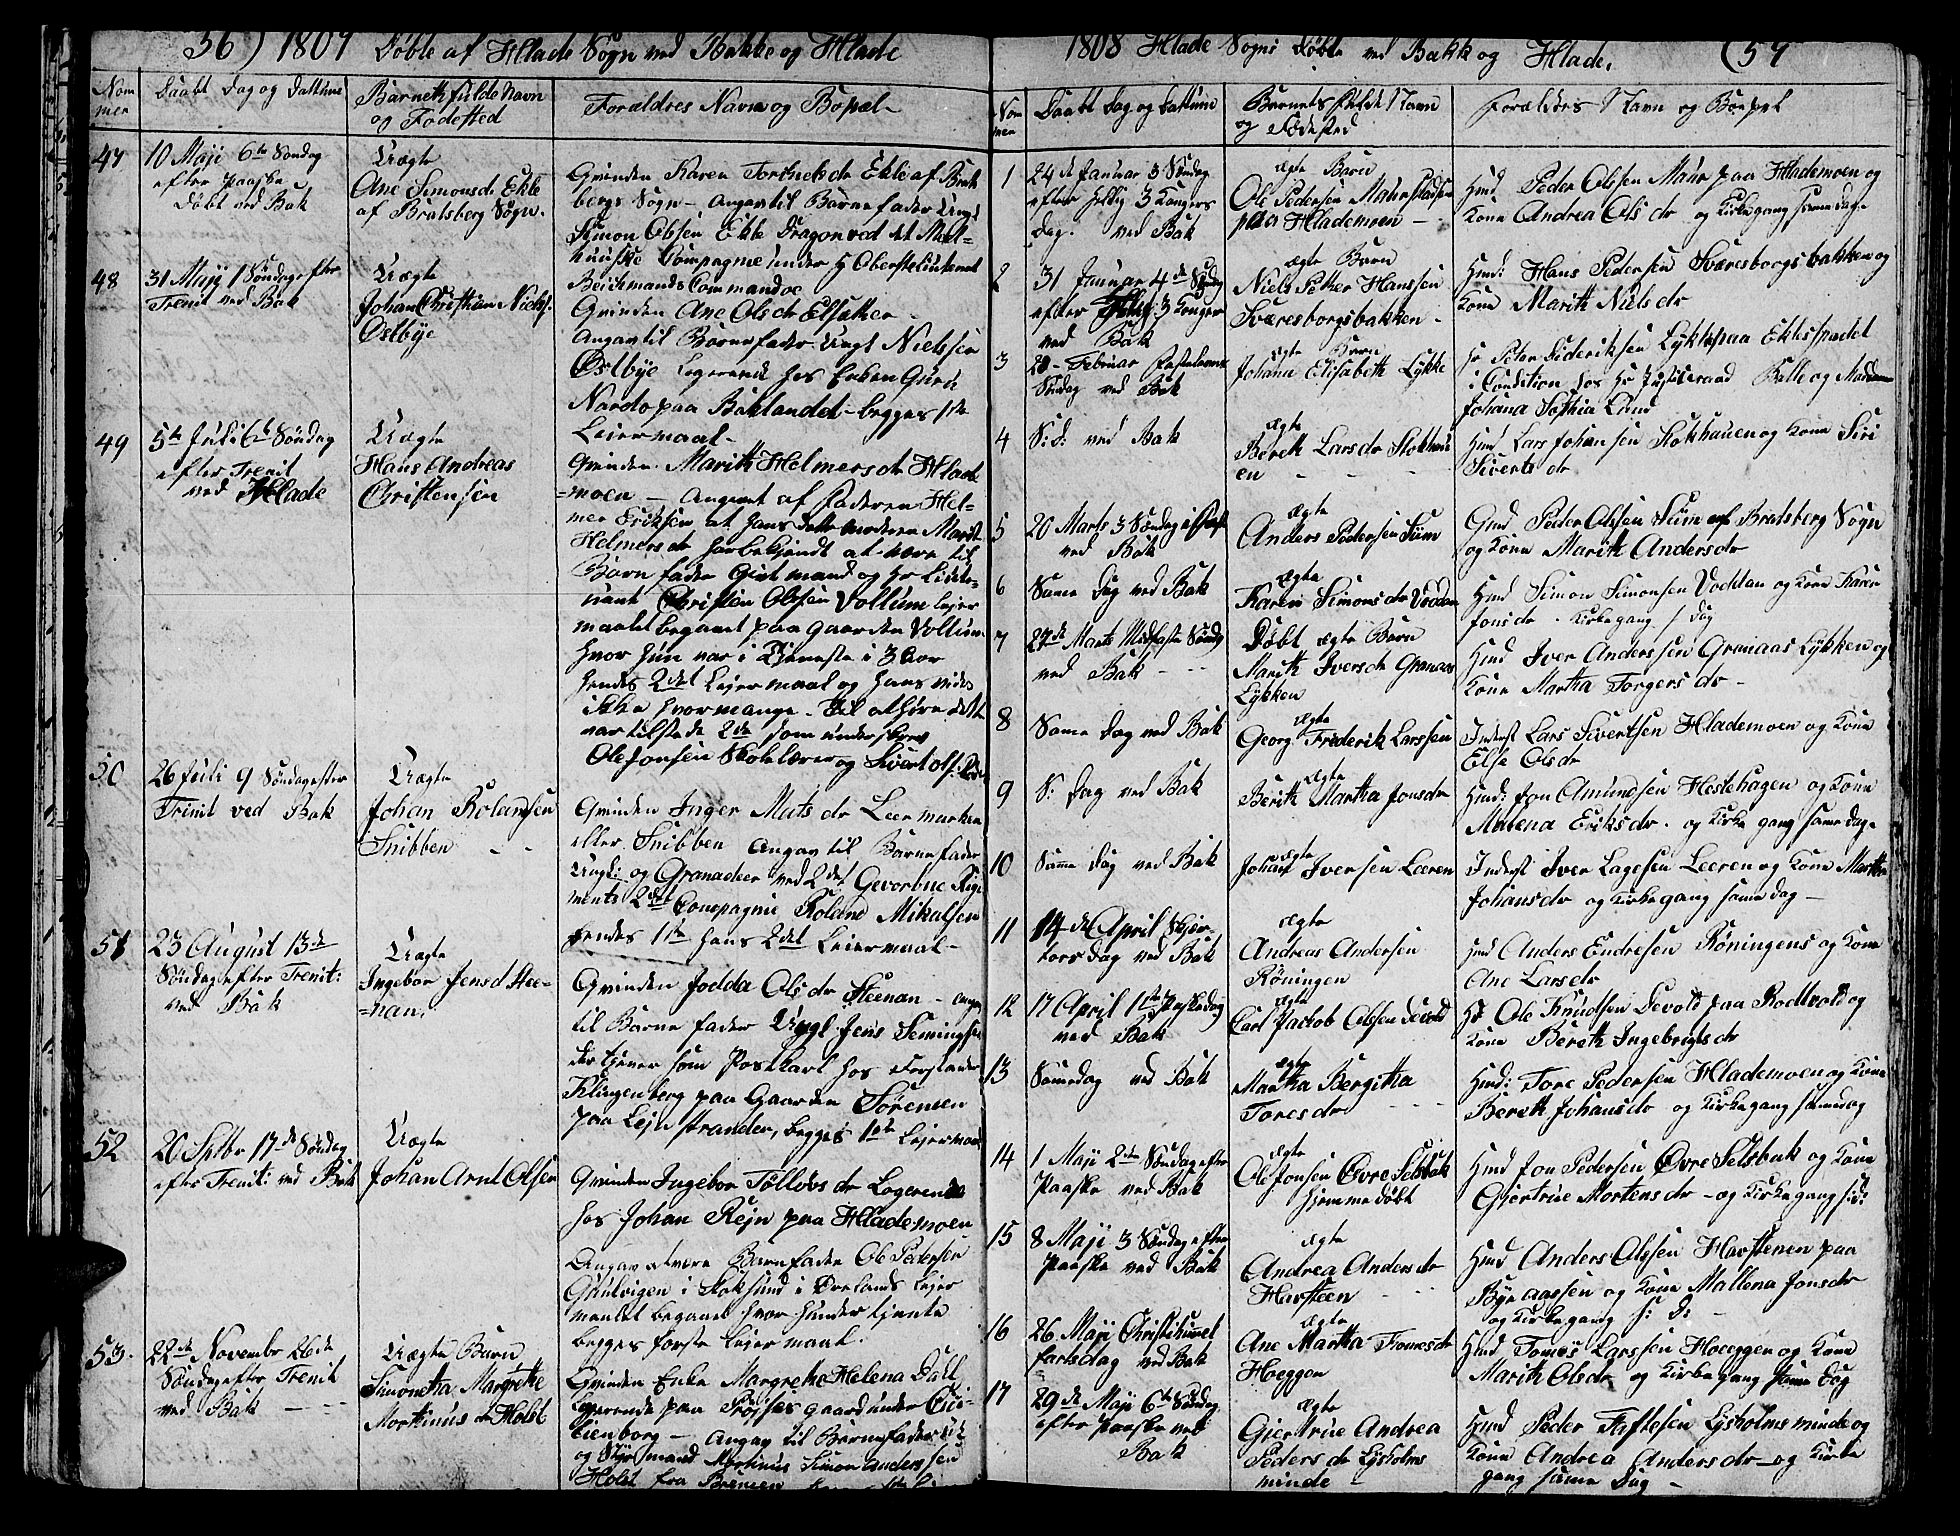 56) 1807 Døbte af Hlade Sogn ved Bakke og Hlade
Nom
mer
Daabs Dag og Dattum
Barnets fulde Navn
og Fødested
Forældres Navn og Bopæl
47
10 Maji 6te Søndag
efter Paaske
Døbt ved Bak
Uægte
Ane Simonsdr Ekle
af Bratsberg Sogn.
Qvinden Karen Torkelsdr Ekle af Brats
bergs Sogn - Angav til Barnefader Ungk
Simon Olsen Ekle Dragon ved det Meel-
huuske Compagnie under H Oberstlieutenant
Beichmands Commandoe
48
31 Maji 1 Søndag efter
Trenit ved Bak
Uægte
Johan Christian Niels:
Østbye
Qvinden Ane Olsdr Elsæther -
Angav til Barnefader Ungk Nielsen
Østbye Logerende hos Enken Guru
Nardo paa Baklandet - begges 1te
Leiermaal -
49
5te Juli 6te Søndag
efter Trenit
ved Hlade
Uægte
Hans Andreas
Christensen
Qvinden Marith Helmersdr Hlade
=moen - Angivet af Faderen Hel-
mer Eriksen at hans datter Moderen Marit
Helmersdr har bekjendt at være til
Barnfader Givt mand og Hr Lieute-
nant Christen Olsen Vollum Leier
maalet begaaet paa Gaarden Vollum
hvor hun var i Tjeneste i 3 Aar
hendes 2det Leiermaal og hans vides
ikke hvormange - Til at høre dette
var tilstede 2de som underskrev
Ole Jonsen Skolelærer og Sivert Ols:
50
26 Juli 9 Søndag efter
Trinit ved Bak
Uægte
Johan Rolansen
Snibben - -
Qvinden Inger Matsdr Leermarken
eller Snibben Angav til Barnefader
Ungk: og Granadeer ved 2det Gevorbne Regi
ments 2det Compagnie Roland Mikalsen
hendes 1te hans 2det Leiermaal -
51
23 August 13de
Søndag efter Trenit:
ved Bak
Uægte
Ingebor Jensd Stee-
=nan.
Qvinden Jodda Olsdr Steenan - Angav
til Barnefader Ungk Jens Henningsen
der tjener som Postkarl hos Forstander
Klingenberg paa Gaarden Sørensen
paa Lejnstranden, begges 1ste Leiermaal
52
20 Septbr 17de Søndag
efter Trenit: ved Bak
Uægte
Johan Arnt Olsen
Qvinden Ingebor Tollovsdr Logerende
hos Johan Rejn paa Hlademoen
Angav at være Barnfader Ole Pedersen
i Stoksund i Ørelands Leier
maalet begaaet hvor hun der tjente
begges første Leiermaal.
53.
22de Novembr 26de
Søndag efter Trenit
ved Bak - -
Uægte Barn
Simonetha Margrethe
Mortinusdr Holst
Qvinden Enke Margrethe Helena Dall
Logerende paa Prøisesgaard under Cici-
lienborg - Angav til Barnefader
og Styrmand Mortinus Simon Anderssen
Holst fra
1808 Hlade Sogns Døbte ved Bakk og Hlade. (57
Nom
mer
Daabs Dag og Dattum
Barnets fulde Navn
og Fødested
Forældres Navn og Boepæl
1
24de Januar 3 Søndag
efter Hellig 3 Kongers
Dag. ved Bak
ægte Barn
Ole Pedersen Maurpladsen
paa Hlademoen -
Hmd Peder Olssen Maur paa Hlademoen og
Kone Andrea Olsdr og Kirkegang samme dag.
2
31 Januar 4de Søndag
efter Hellig 3 Konger
ved Bak
ægte Barn
Niels Petter Hanssen
Sværesborgsbakken -
Hmd: Hans Pedersen Sværesborgsbakken og
Kone Marith Nielsdr
3
28 Februar Fastelavns
Søndag ved Bak
ægte Barn
Johana Elisabeth Lykke
Hr Peter Diderichsen Lykke paa Eklesstadet
i Condition hos Hr Justitsraad Balle og Madame
Johana Sophia Lund
4
S: D: ved Bak
ægte
Bereth Larsdr Stokhau
en - - -
Hmd Lars Johansen Stokhauen og Kone Siri
Sivertsdr
5
20 Marts 3 Søndag i Faste
ved Bak
ægte
Anders Pedersen Tium
Gmd Peder Olssen Tium af Bratsberg Sogn
og Kone Marith Andersdr
6
Same Dag ved Bak
ægte
Karen Simonsdr Voddan
Hmd Simon Simonsen Voddan og Kone Karen
Jonsdr. Kirkegang s Dag
7
27de Marts Midfaste Søndag
ved Bak - - -
Døbt ægte Barn
Marith Iversdr Granaas
Lykken
Hmd Iver Anderssen Granaas Lykken og
Kone Martha Torgersdr -
8
Same Dag ved Bak
ægte
Georg Friderik Larssen
Inderst Lars Sivertsen Hlademoen og Kone
Else Olsdr
9
S: Dag ved Bak
ægte
Berith Martha Jonsdr
Hmd: Jon Amundsen Hestehagen og Kone
Malena Eriksdr. og Kirkegang same dag.
10
Same Dag ved Bak
ægte
Johans Iversen Leeren
Inderst Iver Lagesen Leeren og Kone Martha
Johansdr og Kirkegang same dag -
11
14de April Skjer-
torsdag ved Bak
ægte
Andreas Andersen
Røningen
Hmd Anders Endresen Røningens og Kone
Ane Larsdr
12
17 April 1ste Paaskedag
ved Bak
ægte
Carl Jacob Olssen Devold
Hr Ole Knudsen Devold paa Roetvold og
Kone Bereth Ingebrigtsdr
13
Samedag ved Bak
ægte
Martha Bergitha
Toresdr - - -
Hmd: Tore Pedersen Hlademoen og Kone
Bereth Johansdr og Kirkegang samedag
14
1 Maji 2den Søndag efter
Paaske ved Bak
ægte
Ole Jonsen Øvre Selsbak
hjemmedøbt
Hmd Jon Pedersen Øvre Selsbak og Kone
Gjertrue Mortensdr - og Kirkegang s: D:
15
8 Maji 3 Søndag efter
Paaske ved Bak
ægte
Andrea Andersdr
Havsteen - - -
Hmd Anders Olssen Havstenen paa
Byeaassen og Kone Mallena Jonsdr
og Kirkegang s: D: -
16
26 Maji Christihimmel
fartsdag ved Bak
ægte
Ane Martha Tomesdr
Hoeggen
Hmd Tomes Larssen Hoeggen og Kone
Marith Olsdr og Kirkegang same Dag
17
29de Maji 6te Søndag
efter Paaske ved
Bak
ægte
Gjertrue Andrea
Pedersdr Lysholms
minde -
Hmd Peder Toftesen Lysholmsminde og
Kone Andrea Andersdr - og Kirke
gang same Dag -